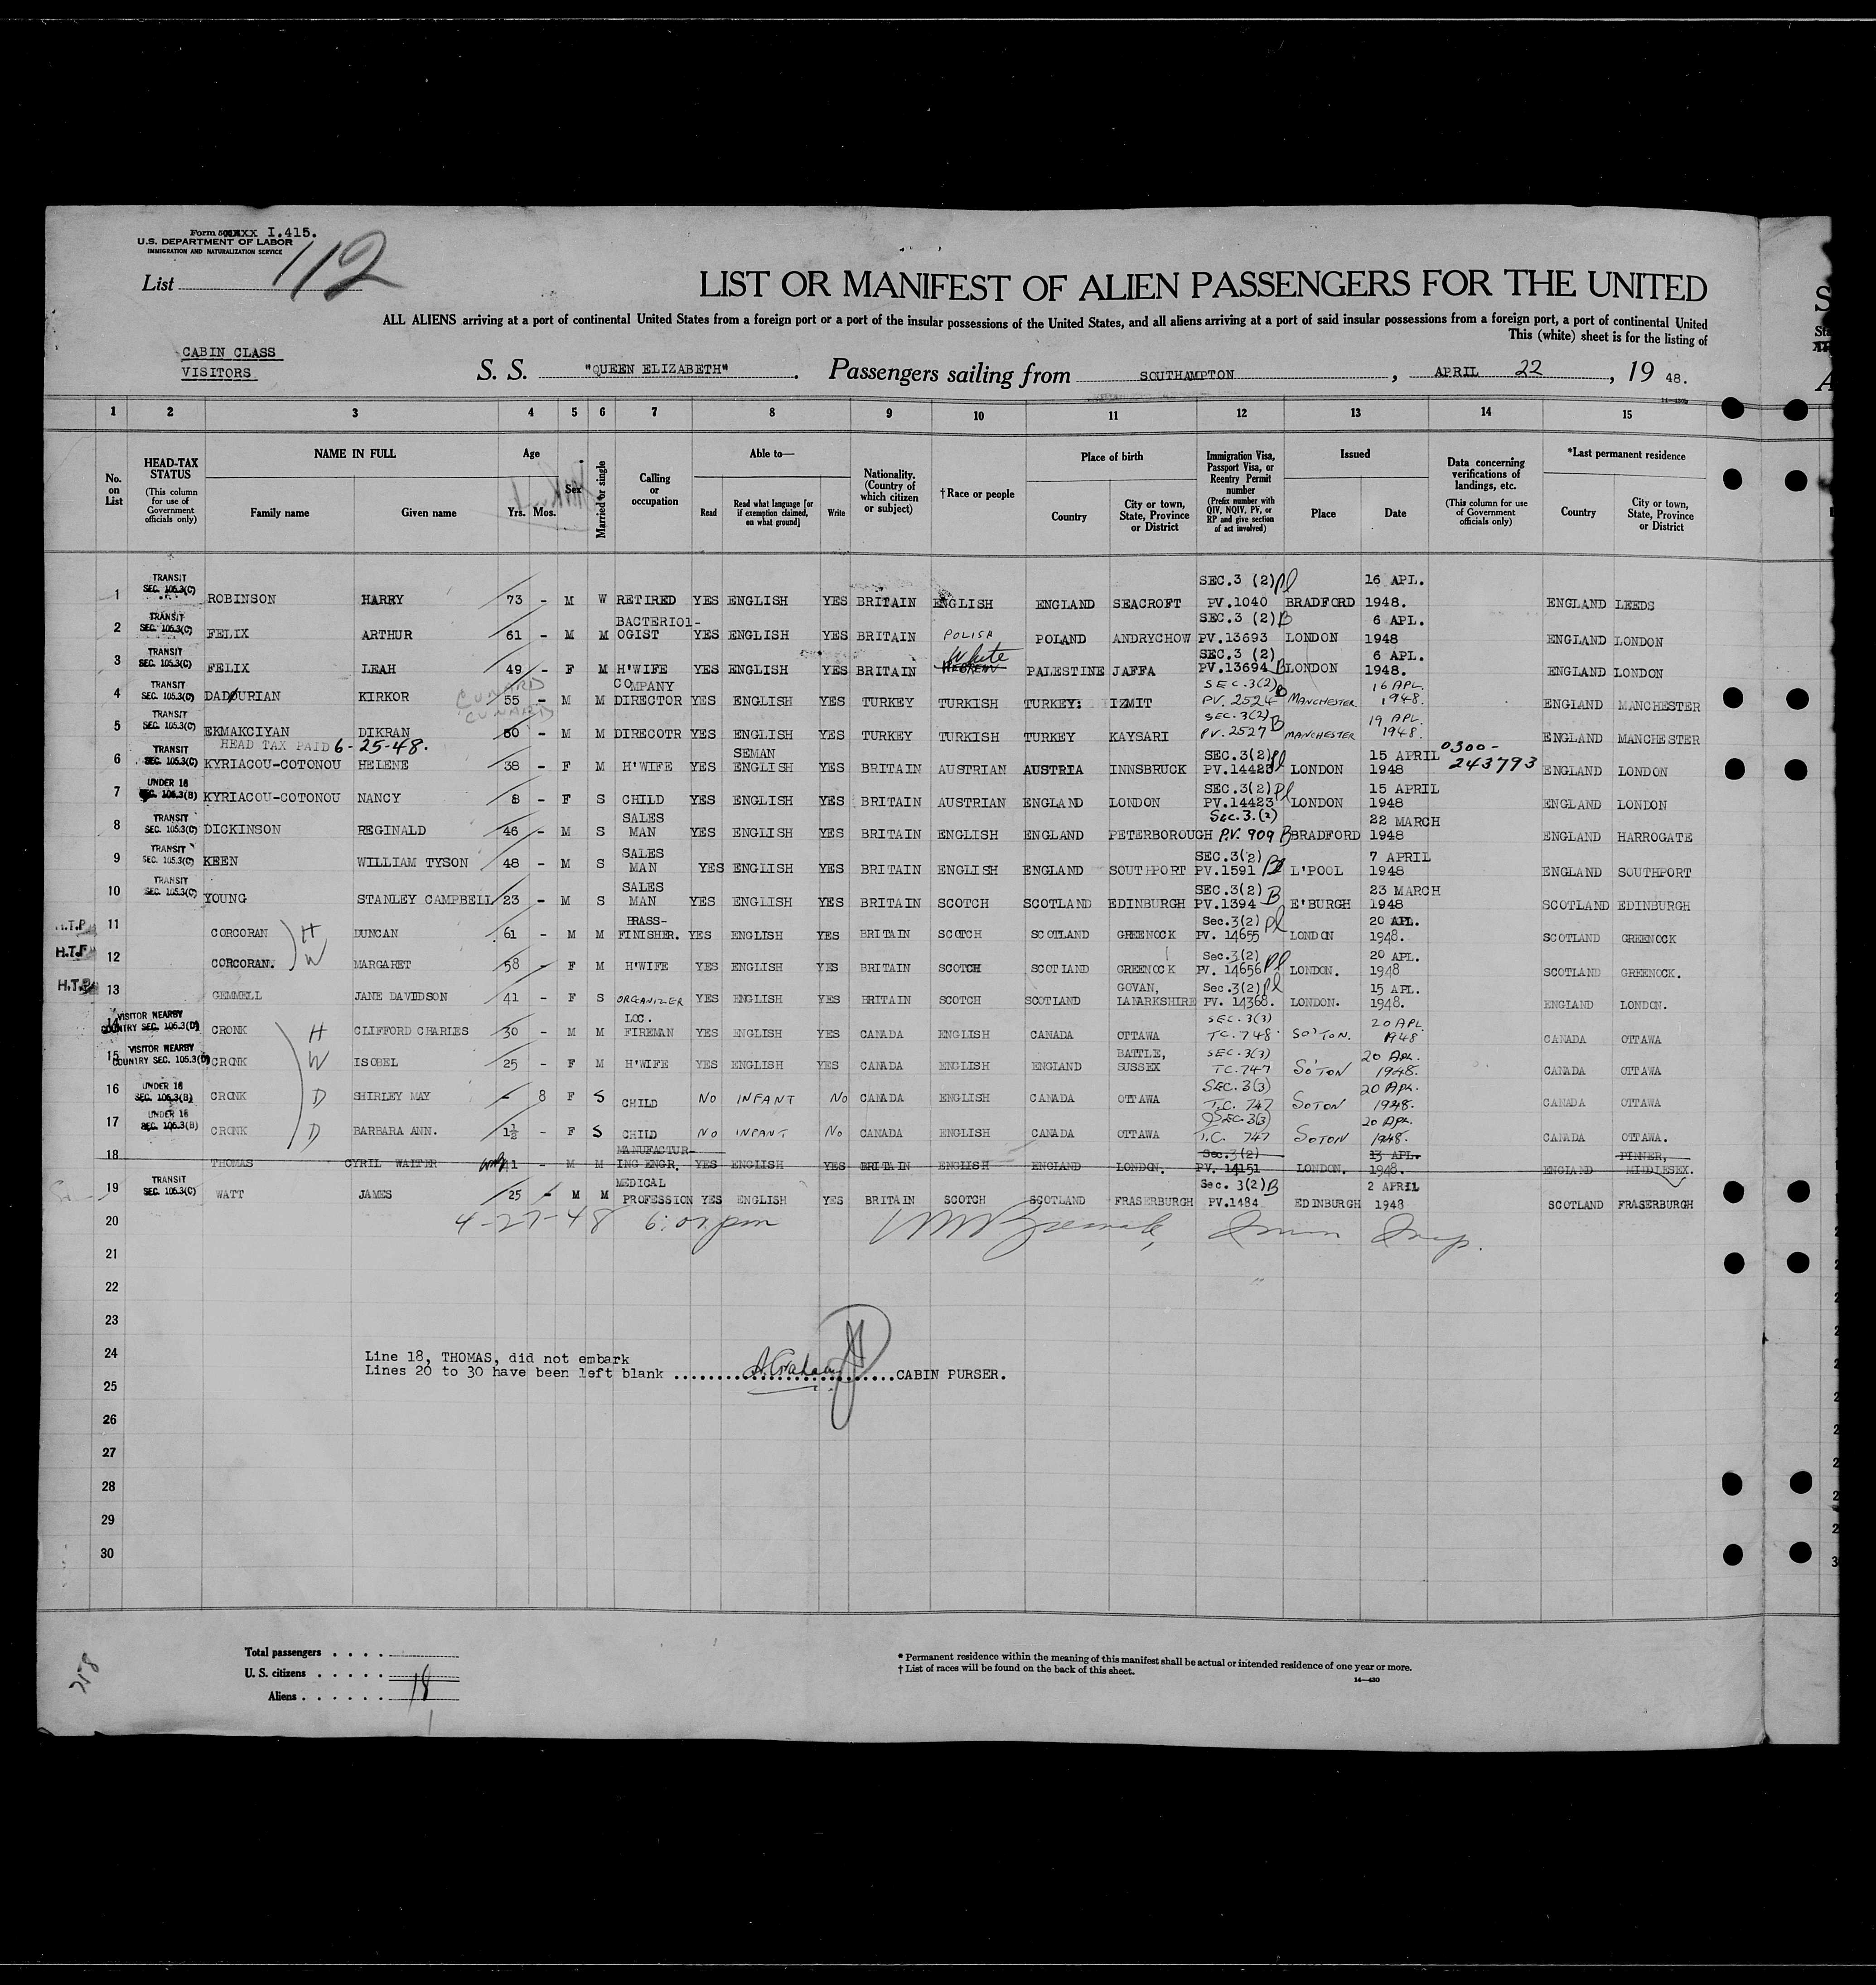 Form 500XXXX I.415.
U.S. DEPARTMENT OF LABOR
IMMIGRATION AND NATURALIZATION SERVICE
List 112
LIST OR MANIFEST OF ALIEN PASSENGERS FOR THE UNITED
ALL ALIENS arriving at a port of continental United States from a foreign port or a port of the insular possessions of the United States, and all aliens arriving at a port of said insular possessions from a foreign port, a port of continental United
This (white) sheet is for the listing of
CABIN CLASS
VISITORS
S. S. "QUEEN ELIZABETH". Passengers sailing from SOUTHAMPTON, APRIL 22, 19 48.
1 2 3 4 5 6 7 8 9 10 11 12 13 14 15
No. on List
HEAD-TAX STATUS (This column for use of Government officials only)
NAME IN FULL Family name Given name
Age Yrs. Mos.
Sex
Married or single
Calling or occupation
Able to— Read Read what language [or if exemption claimed, on what ground] Write
Nationality. (Country of which citizen or subject)
†Race or people
Place of birth Country City or town, State, Province or District
Immigration Visa, Passport Visa, or Reentry Permit number (Prefix number with QIV, NQIV, PV, or RP and give section of act involved)
Issued Place Date
Data concerning verifications of landings, etc. (This column for use of Government officials only)
*Last permanent residence Country City or town, State, Province or District
1 TRANSIT SEC. 105.3(C) ROBINSON HARRY 73 - M W RETIRED YES ENGLISH YES BRITAIN ENGLISH ENGLAND SEACROFT SEC.3 (2) PV.1040 BRADFORD 16 APL. 1948. ENGLAND LEEDS
2 TRANSIT SEC. 105.3(C) FELIX ARTHUR 61 - M M BACTERIOL-OGIST YES ENGLISH YES BRITAIN POLISH POLAND ANDRYCHOW SEC.3 (2) B PV.13693 LONDON 6 APL. 1948 ENGLAND LONDON
3 TRANSIT SEC. 105.3(C) FELIX LEAH 49 - F M H'WIFE YES ENGLISH YES BRITAIN HEBREW White PALESTINE JAFFA SEC.3 (2) PV.13694 B LONDON 6 APL. 1948. ENGLAND LONDON
4 TRANSIT SEC. 105.3(C) DADOURIAN KIRKOR CUNARD 55 - M M COMPANY DIRECTOR YES ENGLISH YES TURKEY TURKISH TURKEY: IZMIT SEC.3(2) B PV.2524 MANCHESTER 16 APL. 1948. ENGLAND MANCHESTER
5 TRANSIT SEC. 105.3(C) EKMAKCIYAN DIKRAN CUNARD 50 - M M DIRECOTR YES ENGLISH YES TURKEY TURKISH TURKEY KAYSARI SEC.3(2) B PV.2527 MANCHESTER 19 APL. 1948. ENGLAND MANCHESTER
HEAD TAX PAID 6-25-48.
6 TRANSIT SEC. 105.3(C) KYRIACOU-COTONOU HELENE 38 - F M H'WIFE YES SEMAN ENGLISH YES BRITAIN AUSTRIAN AUSTRIA INNSBRUCK SEC.3(2) PV.14423 LONDON 15 APRIL 1948 0300-243793 ENGLAND LONDON
7 UNDER 16 SEC. 105.3(B) KYRIACOU-COTONOU NANCY 8 - F S CHILD YES ENGLISH YES BRITAIN AUSTRIAN ENGLAND LONDON SEC.3(2) PV.14423 LONDON 15 APRIL 1948 ENGLAND LONDON
8 TRANSIT SEC. 105.3(C) DICKINSON REGINALD 46 - M S SALES MAN YES ENGLISH YES BRITAIN ENGLISH ENGLAND PETERBOROUGH Sec.3.(2) P.V. 909 B BRADFORD 22 MARCH 1948 ENGLAND HARROGATE
9 TRANSIT SEC. 105.3(C) KEEN WILLIAM TYSON 48 - M S SALES MAN YES ENGLISH YES BRITAIN ENGLISH ENGLAND SOUTHPORT SEC.3(2) PV.1591 L'POOL 7 APRIL 1948 ENGLAND SOUTHPORT
10 TRANSIT SEC. 105.3(C) YOUNG STANLEY CAMPBELL 23 - M S SALES MAN YES ENGLISH YES BRITAIN SCOTCH SCOTLAND EDINBURGH SEC.3(2) B PV.1394 E'BURGH 23 MARCH 1948 SCOTLAND EDINBURGH
H.T.P. 11 CORCORAN H DUNCAN 61 - M M BRASS-FINISHER. YES ENGLISH YES BRITAIN SCOTCH SCOTLAND GREENOCK Sec.3(2) PV. 14655 LONDON 20 APL. 1948. SCOTLAND GREENOCK
H.T.P 12 CORCORAN. W MARGARET 58 - F M H'WIFE YES ENGLISH YES BRITAIN SCOTCH SCOTLAND GREENOCK Sec.3(2) PV. 14656 LONDON. 20 APL. 1948 SCOTLAND GREENOCK.
H.T.P. 13 GEMMELL JANE DAVIDSON 41 - F S ORGANIZER YES ENGLISH YES BRITAIN SCOTCH SCOTLAND GOVAN, LANARKSHIRE Sec.3(2) PV. 14368. LONDON. 15 APL. 1948. ENGLAND LONDON.
14 VISITOR NEARBY COUNTRY SEC. 105.3(D) CRONK H CLIFFORD CHARLES 30 - M M LOC. FIREMAN YES ENGLISH YES CANADA ENGLISH CANADA OTTAWA SEC.3(3) TC.748 SO'TON. 20 APL. 1948 CANADA OTTAWA
15 VISITOR NEARBY COUNTRY SEC. 105.3(D) CRONK W ISOBEL 25 - F M H'WIFE YES ENGLISH YES CANADA ENGLISH ENGLAND BATTLE, SUSSEX SEC.3(3) TC.747 SO'TON 20 APL. 1948. CANADA OTTAWA
16 UNDER 16 SEC. 105.3(B) CRONK D SHIRLEY MAY - 8 F S CHILD NO INFANT NO CANADA ENGLISH CANADA OTTAWA SEC.3(3) T.C. 747 SOTON 20 APL. 1948. CANADA OTTAWA
17 UNDER 16 SEC. 105.3(B) CRONK D BARBARA ANN. 1½ - F S CHILD NO INFANT NO CANADA ENGLISH CANADA OTTAWA SEC.3(3) T.C. 747 SOTON 20 APL. 1948. CANADA OTTAWA.
18 THOMAS CYRIL WALTER 41 - M M MANUFACTUR-ING ENGR. YES ENGLISH YES BRITAIN ENGLISH ENGLAND LONDON. Sec.3(2) PV. 14151 LONDON. 13 APL. 1948. ENGLAND PINNER, MIDDLESEX.
19 TRANSIT SEC. 105.3(C) WATT JAMES 25 - M M MEDICAL PROFESSION YES ENGLISH YES BRITAIN SCOTCH SCOTLAND FRASERBURGH Sec. 3(2) B PV.1484 EDINBURGH 2 APRIL 1948 SCOTLAND FRASERBURGH
20 4-27-48 6:01 pm
21
22
23
24 Line 18, THOMAS, did not embark
Lines 20 to 30 have been left blank A. Graham CABIN PURSER.
25
26
27
28
29
30
Total passengers
U. S. citizens
Aliens 18
* Permanent residence within the meaning of this manifest shall be actual or intended residence of one year or more.
† List of races will be found on the back of this sheet.
14—430